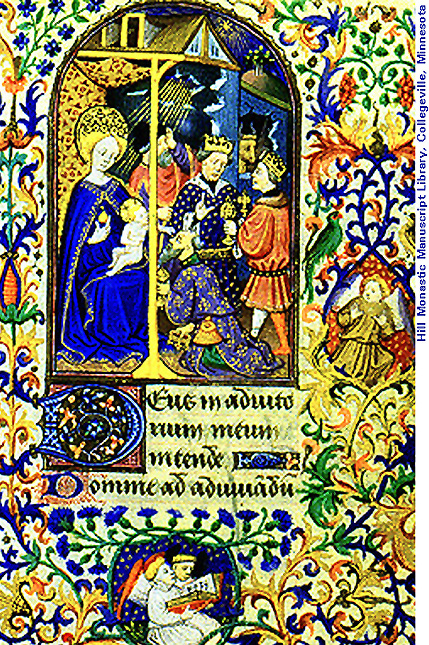 Deus in adiuto
rium meum
intende
Domine ad adiuuãdu
Hill Monastic Manuscript Library, Collegeville, Minnesota